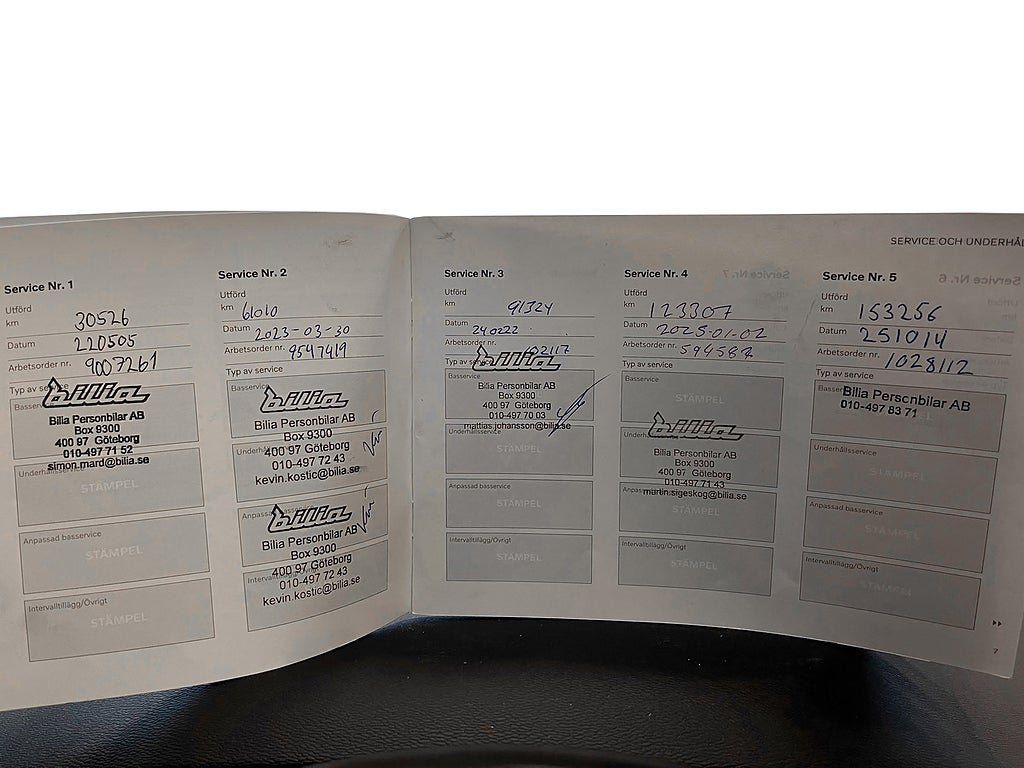 Service Nr. 1
Utförd
km 30526
Datum 220505
Arbetsorder nr. 9007261
Typ av service
Basservice
bilia
Bilia Personbilar AB
Box 9300
400 97 Göteborg
010-497 71 52
simon.mard@bilia.se
Underhållsservice
STÄMPEL
Anpassad basservice
STÄMPEL
Intervalltillägg/Övrigt
STÄMPEL
Service Nr. 2
Utförd
km 61010
Datum 2023-03-30
Arbetsorder nr. 9547419
Typ av service
Basservice
bilia
Bilia Personbilar AB
Box 9300
400 97 Göteborg
010-497 72 43
kevin.kostic@bilia.se
Anpassad basservice
bilia
Bilia Personbilar AB
Box 9300
400 97 Göteborg
010-497 72 43
kevin.kostic@bilia.se
Intervalltillägg/Övrigt
SERVICE OCH UNDERHÅL
Service Nr. 3
Utförd
km 91324
Datum 240222
Arbetsorder nr. 102117
Typ av service
Basservice
bilia
Bilia Personbilar AB
Box 9300
400 97 Göteborg
010-497 70 03
mattias.johansson@bilia.se
Underhållsservice
STÄMPEL
Anpassad basservice
STÄMPEL
Intervalltillägg/Övrigt
STÄMPEL
Service Nr. 4
Utförd
km 123307
Datum 2025-01-02
Arbetsorder nr. 594587
Typ av service
Basservice
STÄMPEL
Underhållsservice
bilia
Bilia Personbilar AB
Box 9300
400 97 Göteborg
010-497 71 43
martin.sigeskog@bilia.se
Anpassad basservice
STÄMPEL
Intervalltillägg/Övrigt
STÄMPEL
Service Nr. 5
Utförd
km 153256
Datum 251014
Arbetsorder nr. 1028112
Typ av service
Basservice
Bilia Personbilar AB
010-497 83 71
Underhållsservice
STÄMPEL
Anpassad basservice
STÄMPEL
Intervalltillägg/Övrigt
STÄMPEL
7